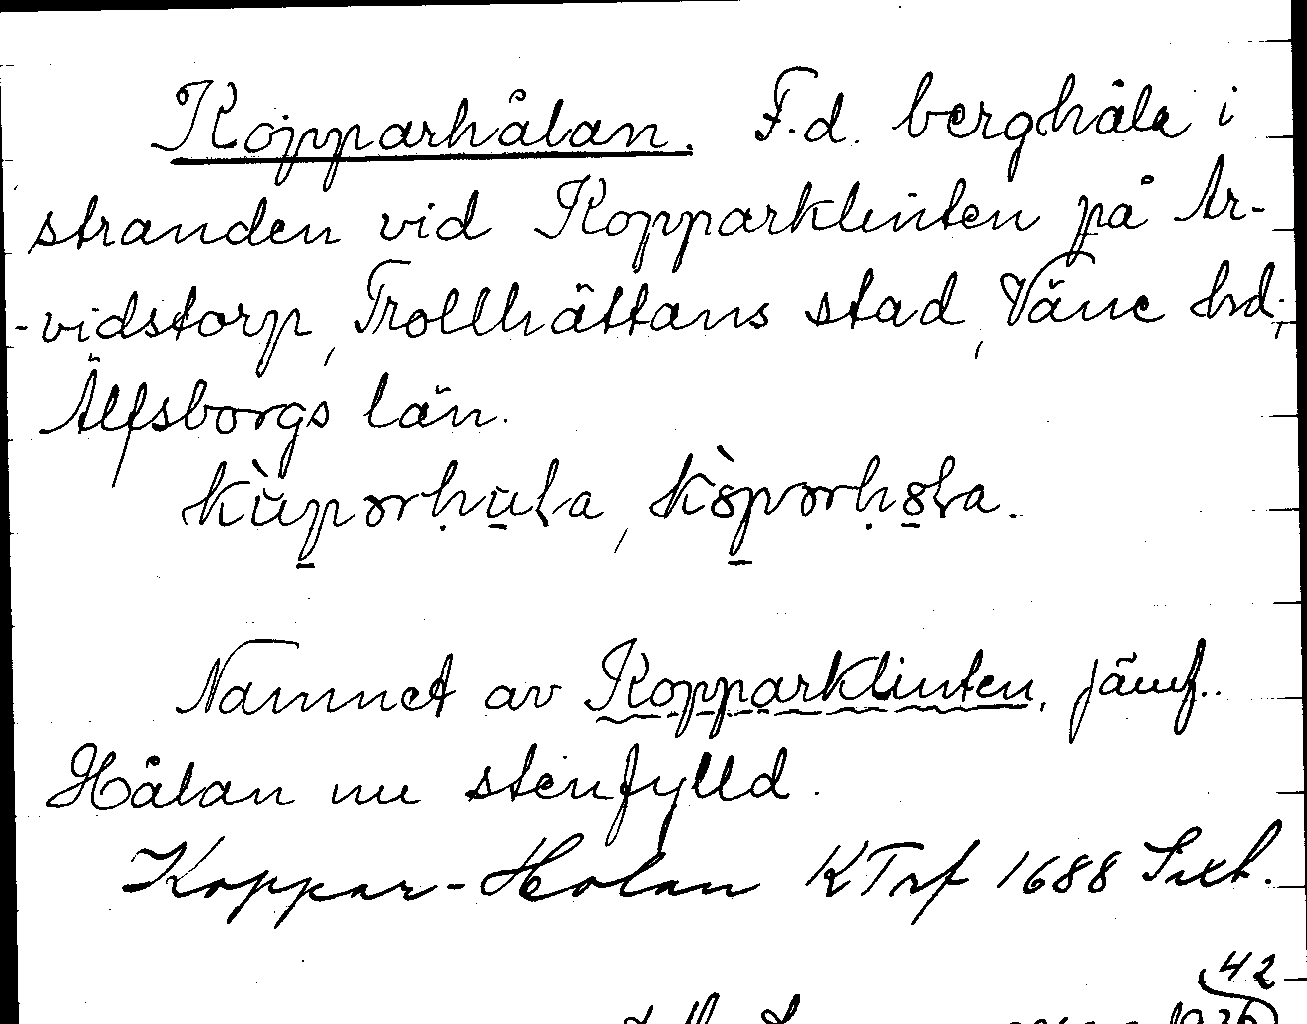 Kopparhålan. F.d. berghåla i
stranden vid Kopparklinten på Ar-
-vidstorp, Trollhättans stad, Väne hd,
Älfsborgs län.
Namnet av Kopparklinten, jämf.
Hålan nu stenfylld.
Koppar-Holan KTrf 1688 Sixt.
42